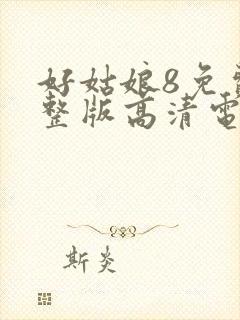 好姑娘8免
整版高清電
斯炎